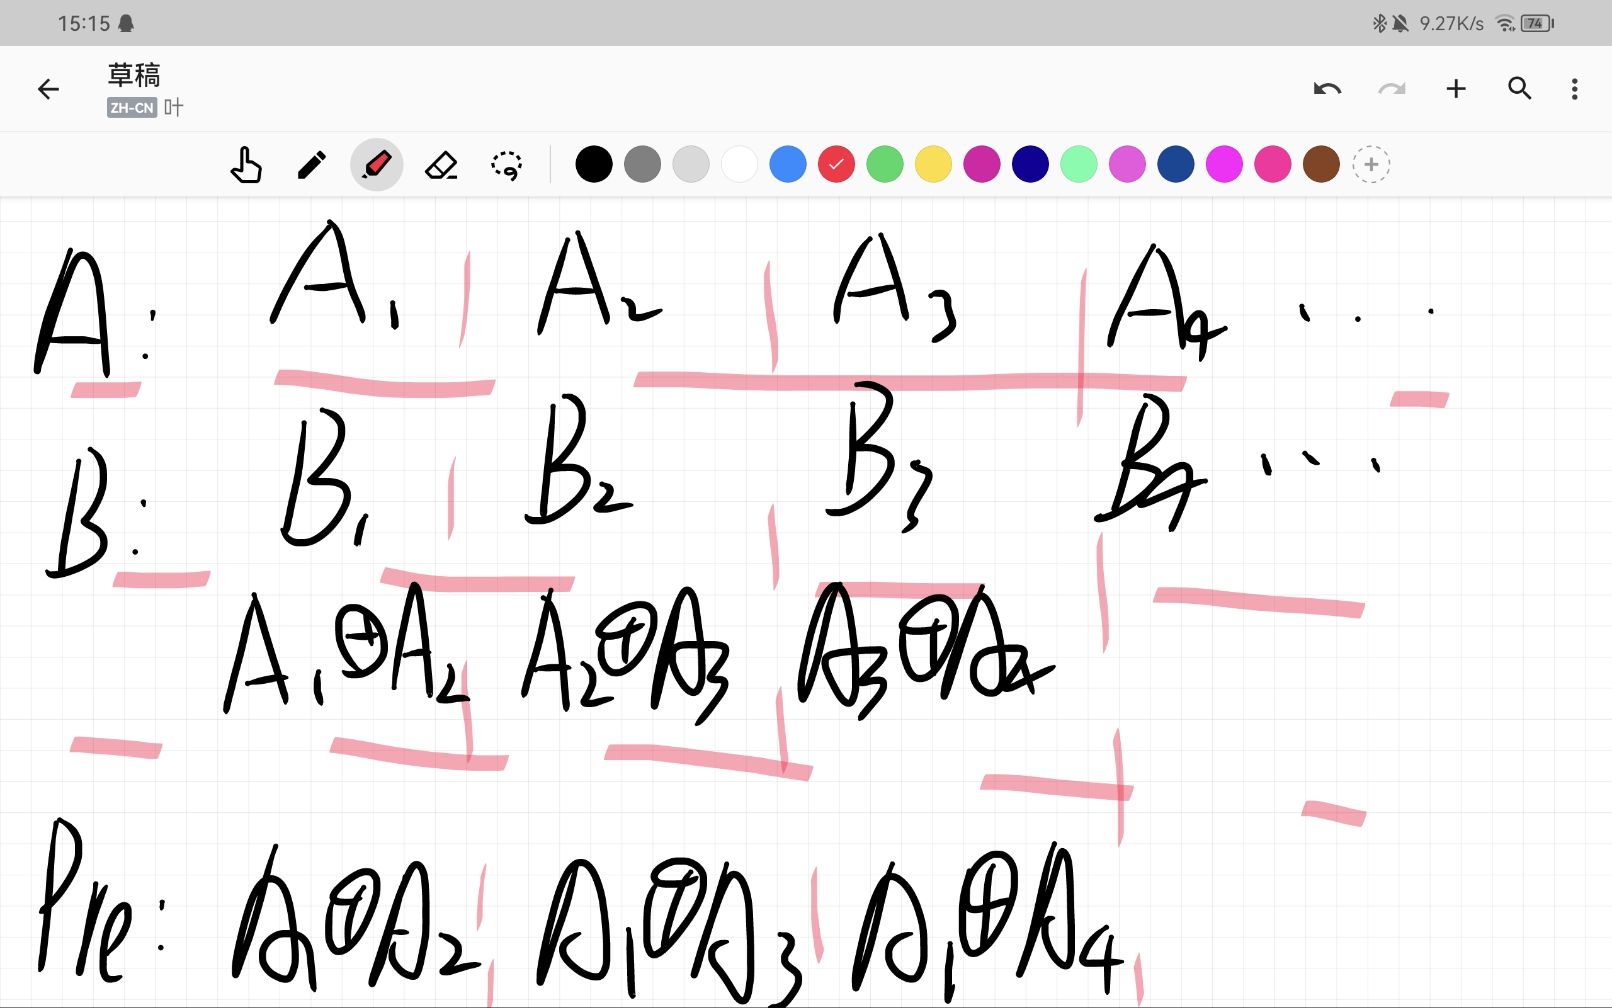 15:15 9.27K/s 74
草稿
ZH-CN 叶
A: A₁ A₂ A₃ A₄ ...
B: B₁ B₂ B₃ B₄ ...
A₁⊕A₂ A₂⊕A₃ A₃⊕A₄
Pre: A₁⊕A₂ A₁⊕A₃ A₁⊕A₄